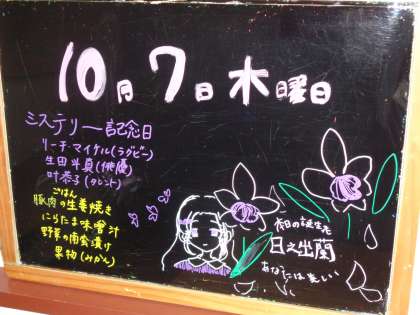 10月7日木曜日
ミステリー記念日
リーチ・マイケル(ラグビー)
生田斗真(俳優)
叶恭子(タレント)
ごはん
豚肉の生姜焼き
にらたま味噌汁
野菜の甘酢漬け
果物(みかん)
本日の誕生花
日之出蘭
あなたは美しい